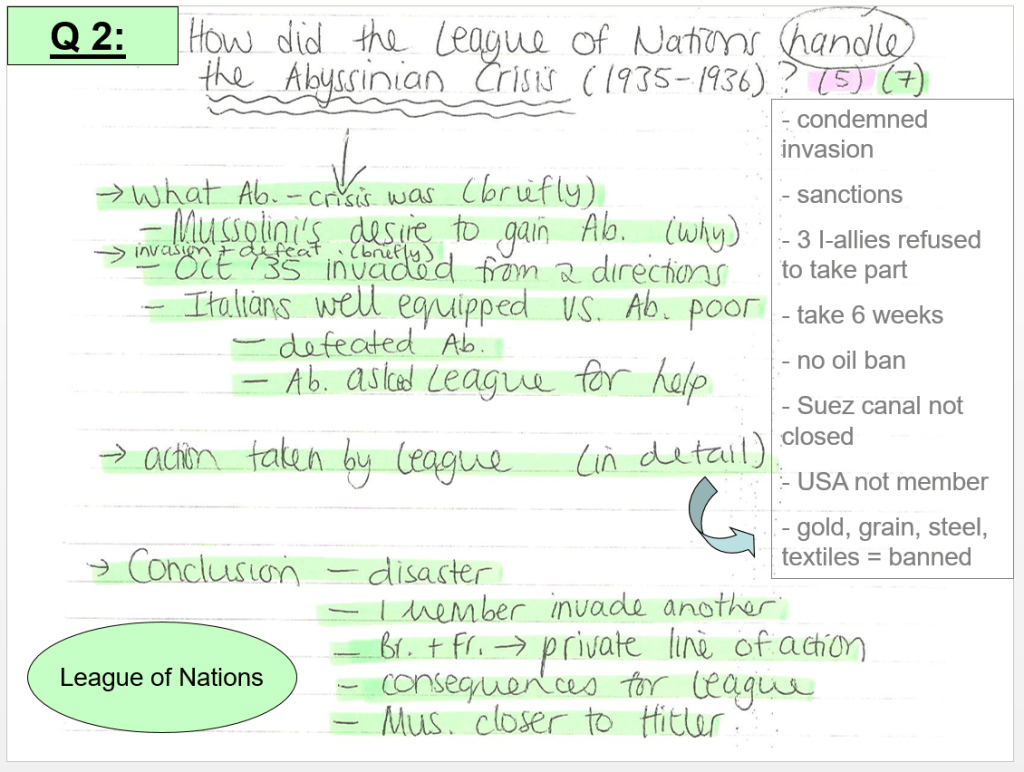 Q 2:
How did the League of Nations handle
the Abyssinian Crisis (1935-1936)? (5) (7)
→ What Ab. - crisis was (briefly)
- Mussolini's desire to gain Ab. (why)
→ invasion + defeat (briefly)
- Oct '35 invaded from 2 directions
- Italians well equipped vs. Ab. poor
- defeated Ab.
- Ab. asked League for help
→ action taken by League (in detail)
- condemned
invasion
- sanctions
- 3 I-allies refused
to take part
- take 6 weeks
- no oil ban
- Suez canal not
closed
- USA not member
- gold, grain, steel,
textiles = banned
→ Conclusion - disaster
- 1 member invade another
- Br. + Fr. → private line of action
- consequences for League
- Mus. closer to Hitler.
League of Nations